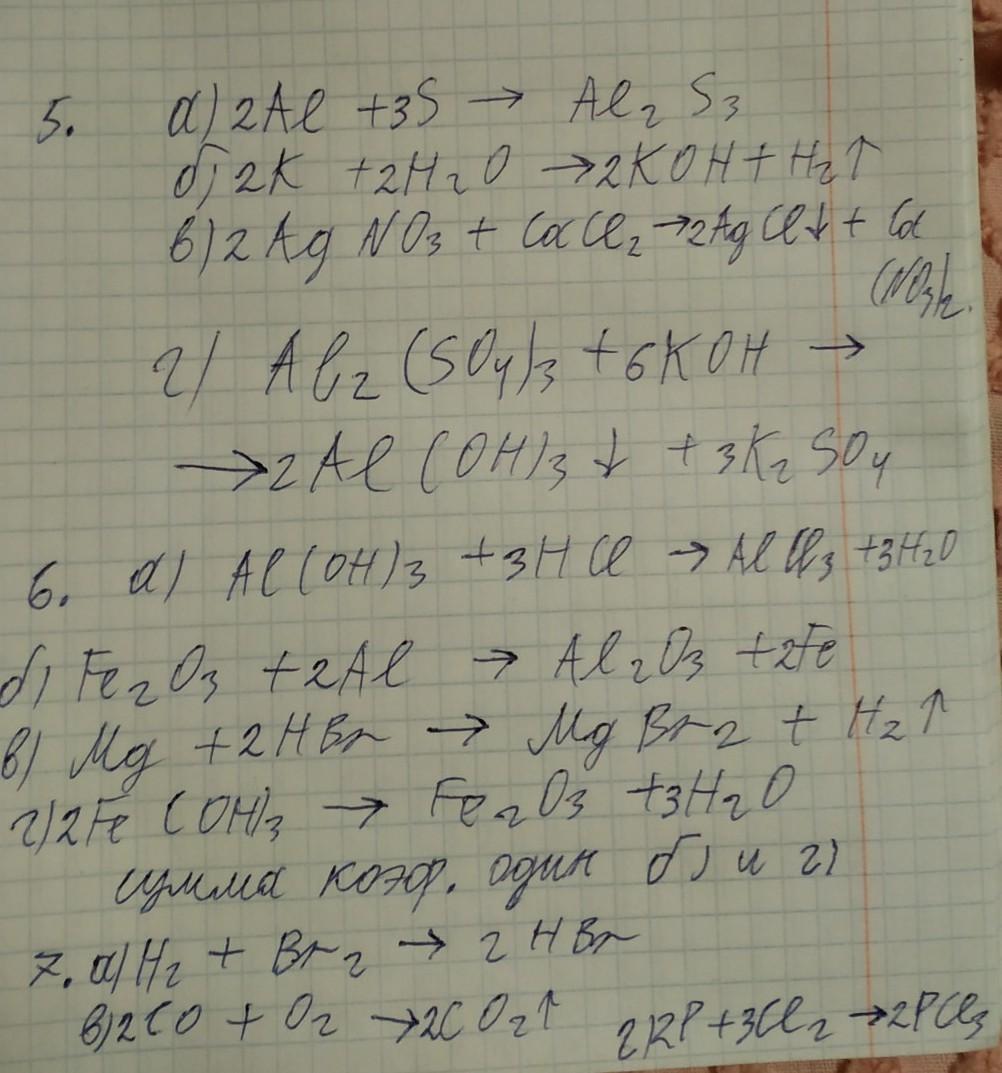 5. а) 2Al + 3S → Al₂S₃
б) 2K + 2H₂O → 2KOH + H₂↑
в) 2AgNO₃ + CaCl₂ → 2AgCl↓ + Ca
(NO₃)₂.
г) Al₂(SO₄)₃ + 6KOH →
→ 2Al(OH)₃↓ + 3K₂SO₄
6. а) Al(OH)₃ + 3HCl → AlCl₃ + 3H₂O
б) Fe₂O₃ + 2Al → Al₂O₃ + 2Fe
в) Mg + 2HBr → MgBr₂ + H₂↑
г) 2Fe(OH)₃ → Fe₂O₃ + 3H₂O
сумма коэф. один б) и г)
7. а) H₂ + Br₂ → 2HBr
в) 2CO + O₂ → 2CO₂↑ г) 2P + 3Cl₂ → 2PCl₃